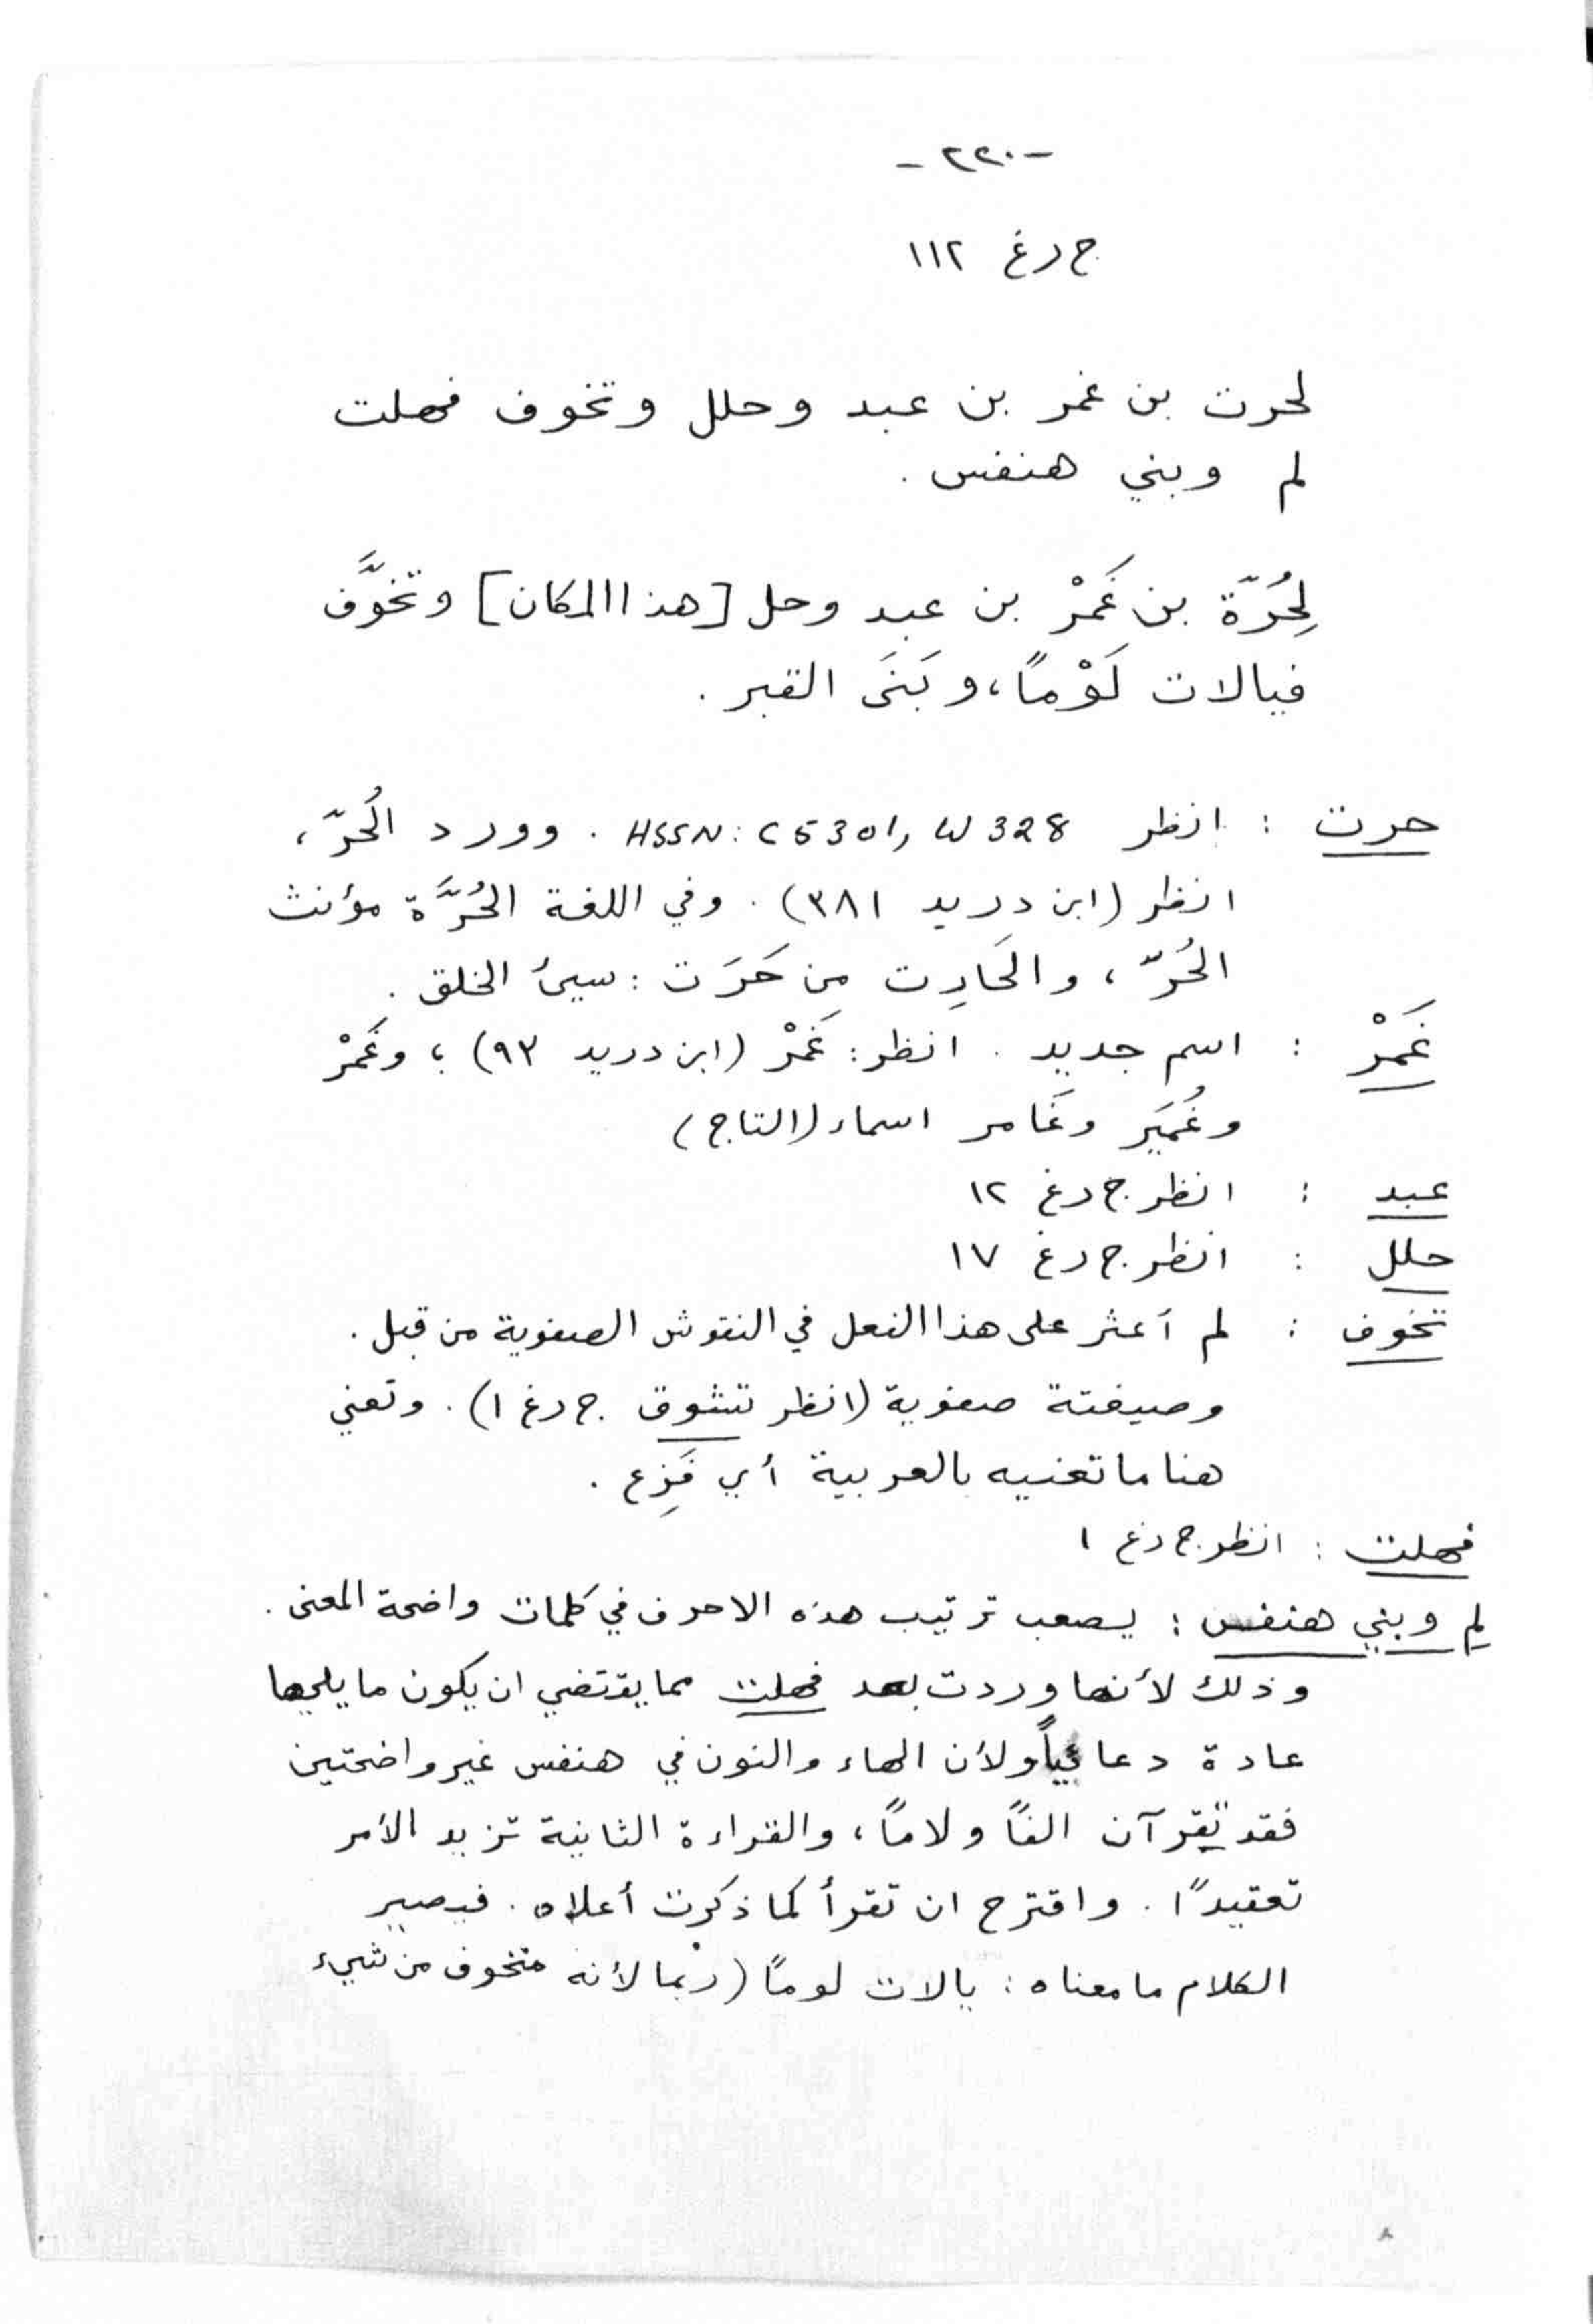 -٢٢٠-
ج دغ ١١٢
لحرت بن غمر بن عبد وحلل وتخوف فهلت
لم وبني هنفس .
لِحُرّة بن غَمْر بن عبد وحل [هذا المكان] وتخوَّف
فيالات لَوْماً، وبَنَى القبر .
حرت : انظر HSSN: C5301, W328 . وورد الحُرّ،
انظر (ابن دريد ٣٨١) . وفي اللغة الحُرَّة مؤنث
الحُرّ ، والحَارِت مِن حَرَت : سيئ الخلق .
غَمْر : اسم جديد . انظر: غَمْر (ابن دريد ٩٣) ؛ وغَمْر
وغُمَير وغَامر اسماء (التاج)
عبد : انظر ج دغ ١٢
حلل : انظر ج دغ ١٧
تخوف : لم أعثر على هذا الفعل في النقوش الصفوية من قبل .
وصيغتة صفوية (انظر تشوق ج دغ ١) . وتعني
هنا ما تعنيه بالعربية أي فَزِع .
فهلت : انظر ج دغ ١
لم وبني هنفس : يصعب ترتيب هذه الاحرف في كلمات واضحة المعنى .
وذلك لأنها وردت بعد فهلت مما يقتضي ان يكون ما يليها
عادة دعائياً ولأن الهاء والنون في هنفس غير واضحتين
فقد تقرآن الفاً ولاماً ، والقراءة الثانية تزيد الأمر
تعقيداً . واقترح ان تقرأ كما ذكرت أعلاه . فيصير
الكلام ما معناه : يالات لوماً (ربما لأنه متخوف من شيء